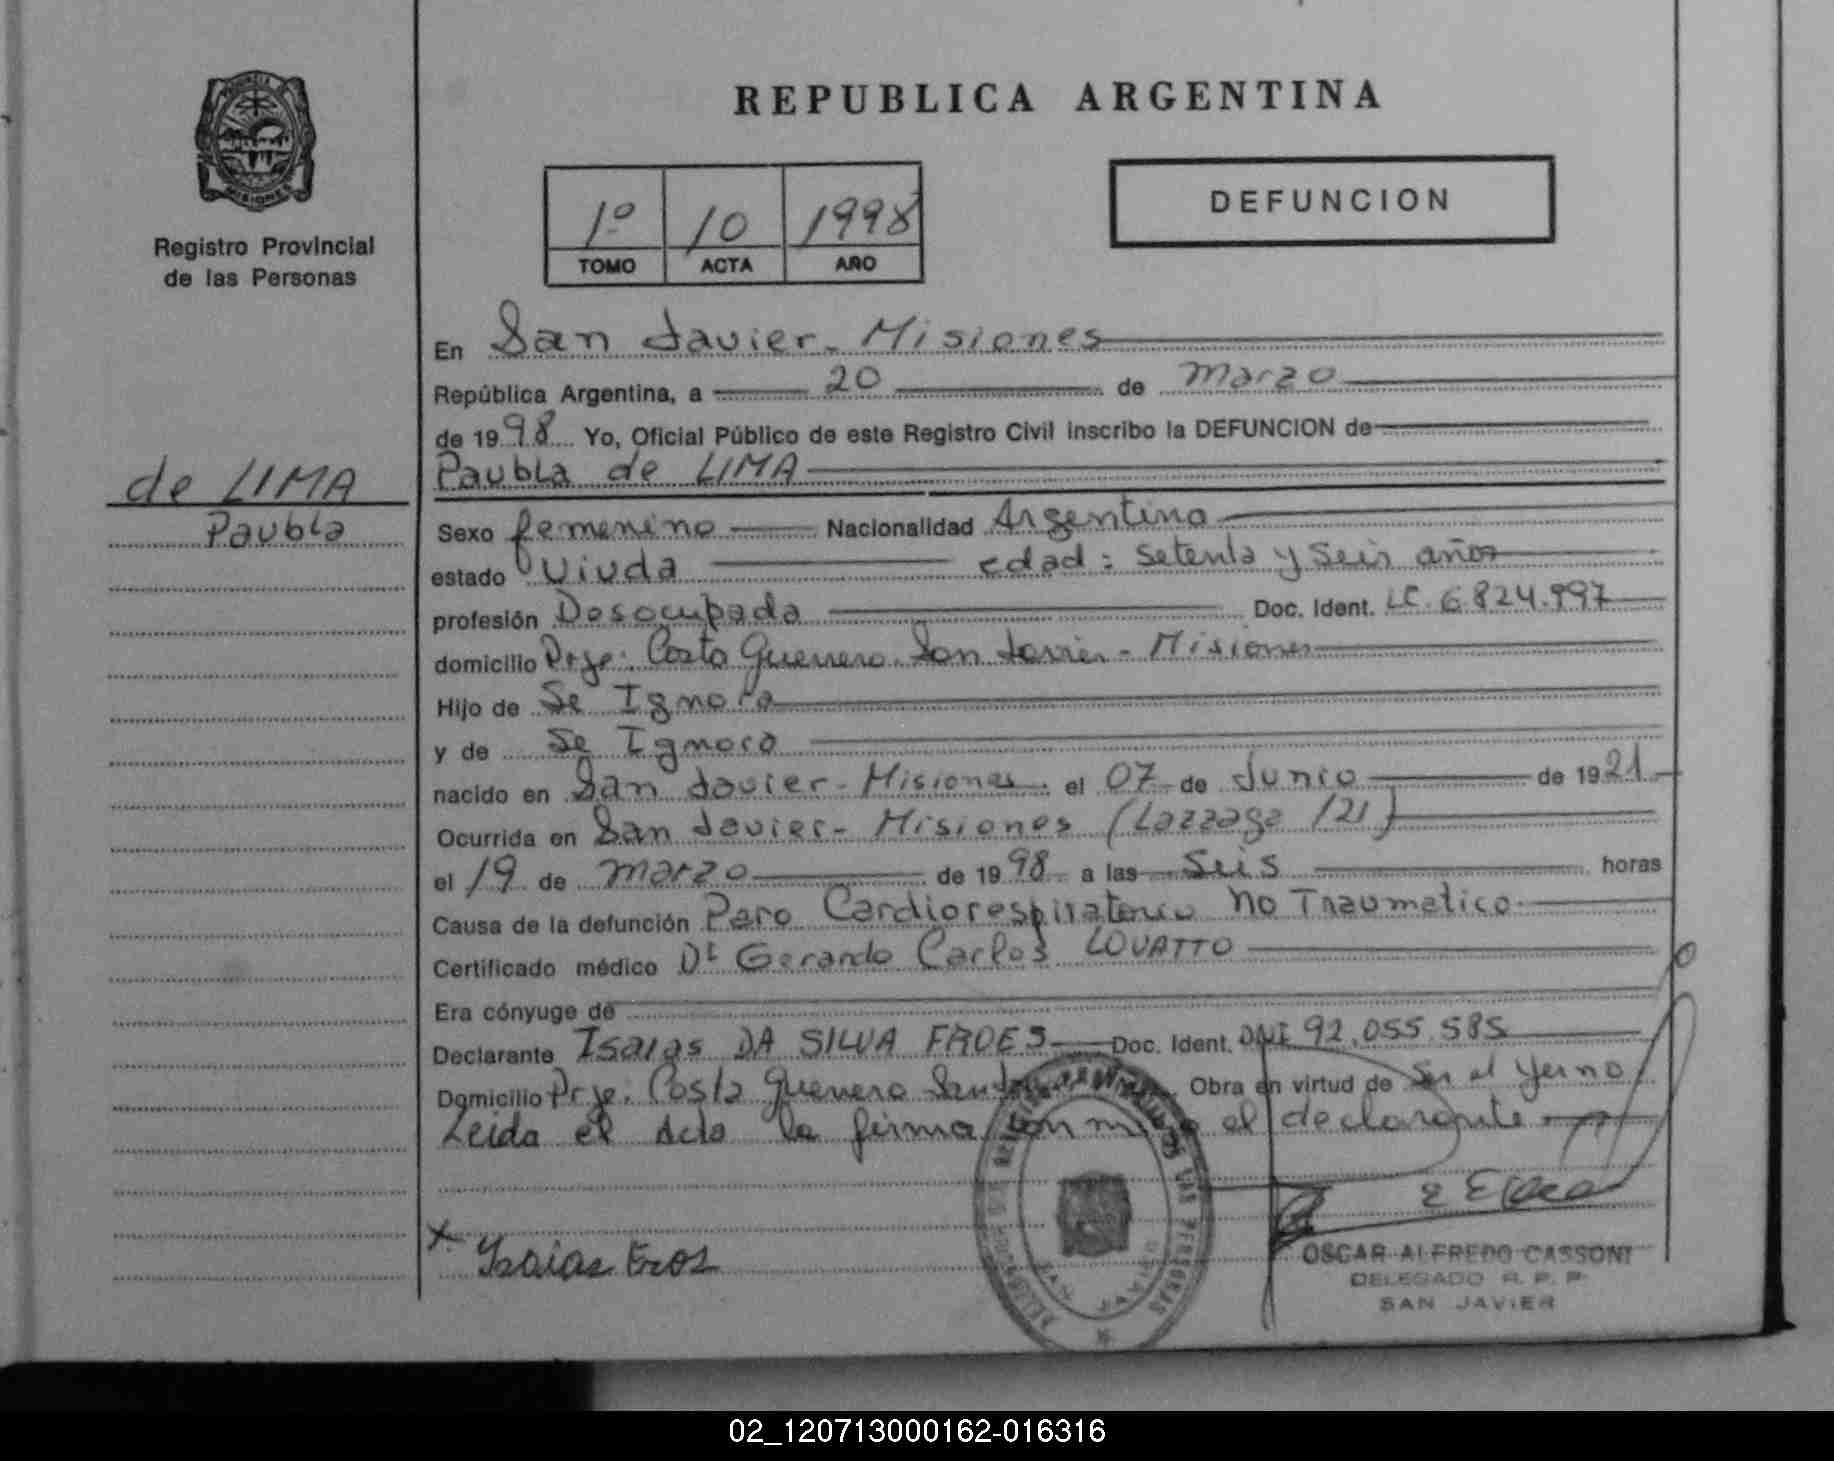 REPUBLICA ARGENTINA
PROVINCIA DE
MISIONES
Registro Provincial
de las Personas
1º 10 1998
TOMO ACTA AÑO
DEFUNCION
En San Javier - Misiones
República Argentina, a 20 de Marzo
de 1998 Yo, Oficial Público de este Registro Civil inscribo la DEFUNCION de
Paubla de LIMA
de LIMA
Paubla
Sexo femenino Nacionalidad Argentina
estado Viuda edad: setenta y seis años
profesión Desocupada Doc. Ident. LC. 6.824.997
domicilio Prje. Costa Guerrero San Javier - Misiones
Hijo de Se Ignora
y de Se Ignora
nacido en San Javier - Misiones el 07 de Junio de 1921
Ocurrida en San Javier - Misiones (Lazzaga 121)
el 19 de Marzo de 1998 a las Seis horas
Causa de la defunción Paro Cardiorespiratorio No Traumatico
Certificado médico Dr Gerardo Carlos LOVATTO
Era cónyuge de
Declarante Isaias DA SILVA FROES Doc. Ident. DNI 92.055.585
Domicilio Prje. Costa Guerrero San Obra en virtud de Ser el Yerno
Leida el Acta la firma con migo el declarante
x Isaias Eros
OSCAR ALFREDO CASSONI
DELEGADO R. P. P.
SAN JAVIER
SAN JAVIER
02_120713000162-016316